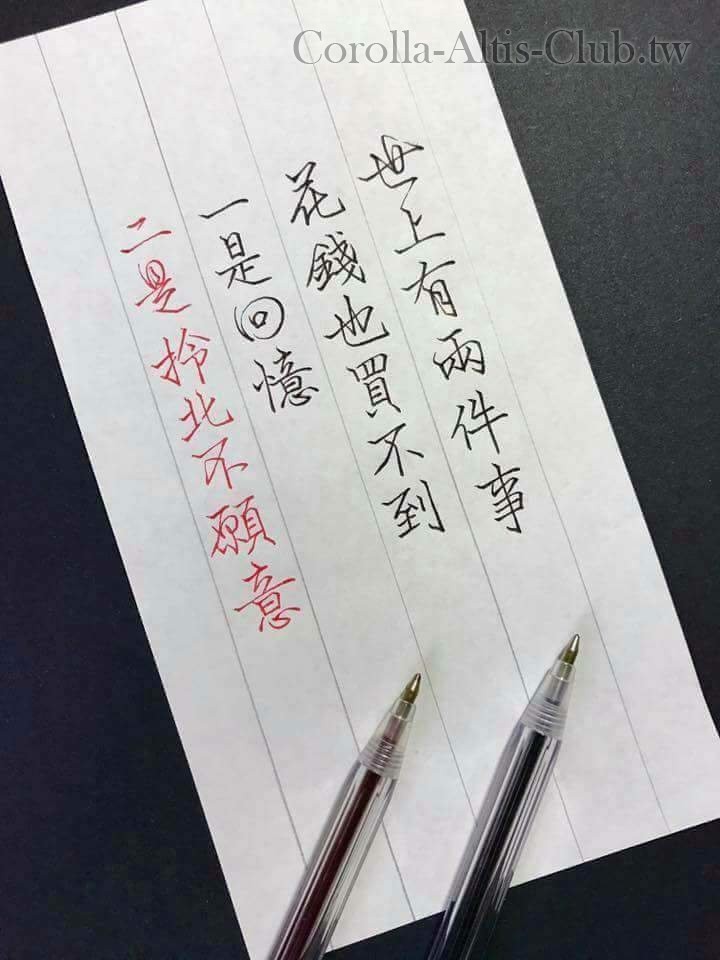 Corolla-Altis-Club.tw
世上有兩件事
花錢也買不到
一是回憶
二是拎北不願意